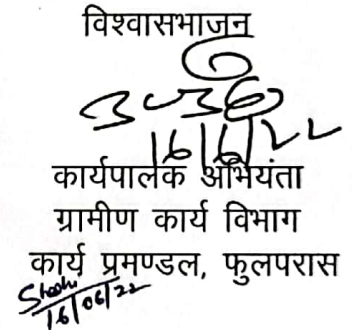 विश्वासभाजन
16/6/22
कार्यपालक अभियंता
ग्रामीण कार्य विभाग
कार्य प्रमण्डल, फुलपरास
16/06/22